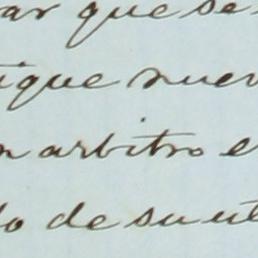 ar que se
ique nuev
n arbitro e
do de su ut